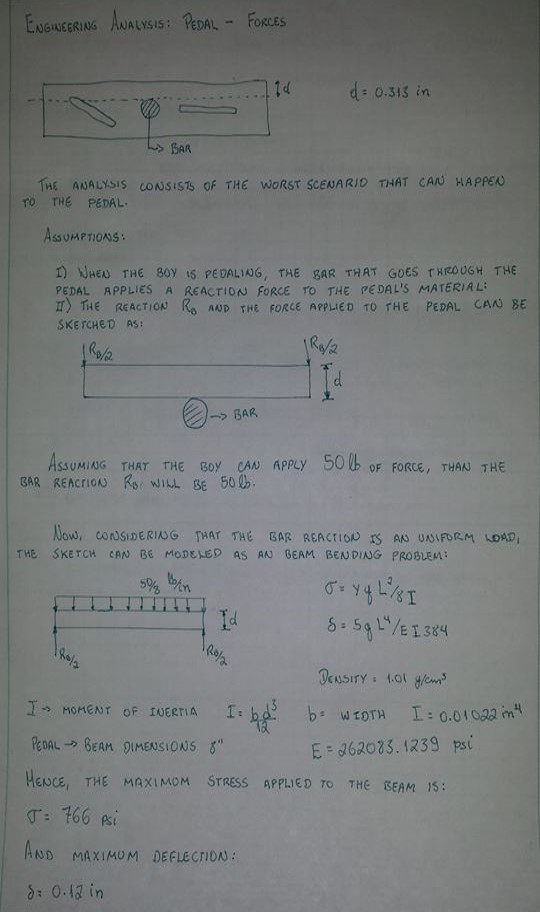 ENGINEERING ANALYSIS: PEDAL - FORCES
d
d = 0.313 in
BAR
THE ANALYSIS CONSISTS OF THE WORST SCENARIO THAT CAN HAPPEN
TO THE PEDAL.
ASSUMPTIONS:
I) WHEN THE BOY IS PEDALING, THE BAR THAT GOES THROUGH THE
PEDAL APPLIES A REACTION FORCE TO THE PEDAL'S MATERIAL:
II) THE REACTION RB AND THE FORCE APPLIED TO THE PEDAL CAN BE
SKETCHED AS:
RB/2
RB/2
d
→ BAR
ASSUMING THAT THE BOY CAN APPLY 50 lb OF FORCE, THAN THE
BAR REACTION RB WILL BE 50 lb.
NOW, CONSIDERING THAT THE BAR REACTION IS AN UNIFORM LOAD,
THE SKETCH CAN BE MODELED AS AN BEAM BENDING PROBLEM:
50/8 lb/in
σ = y q L²/8 I
d
δ = 5 q L⁴/E I 384
RB/2
RB/2
DENSITY = 1.01 g/cm³
I → MOMENT OF INERTIA I = bd³/12 b = WIDTH I = 0.01022 in⁴
PEDAL → BEAM DIMENSIONS 8" E = 262083.1239 psi
HENCE, THE MAXIMUM STRESS APPLIED TO THE BEAM IS:
σ = 766 psi
AND MAXIMUM DEFLECTION:
δ = 0.12 in